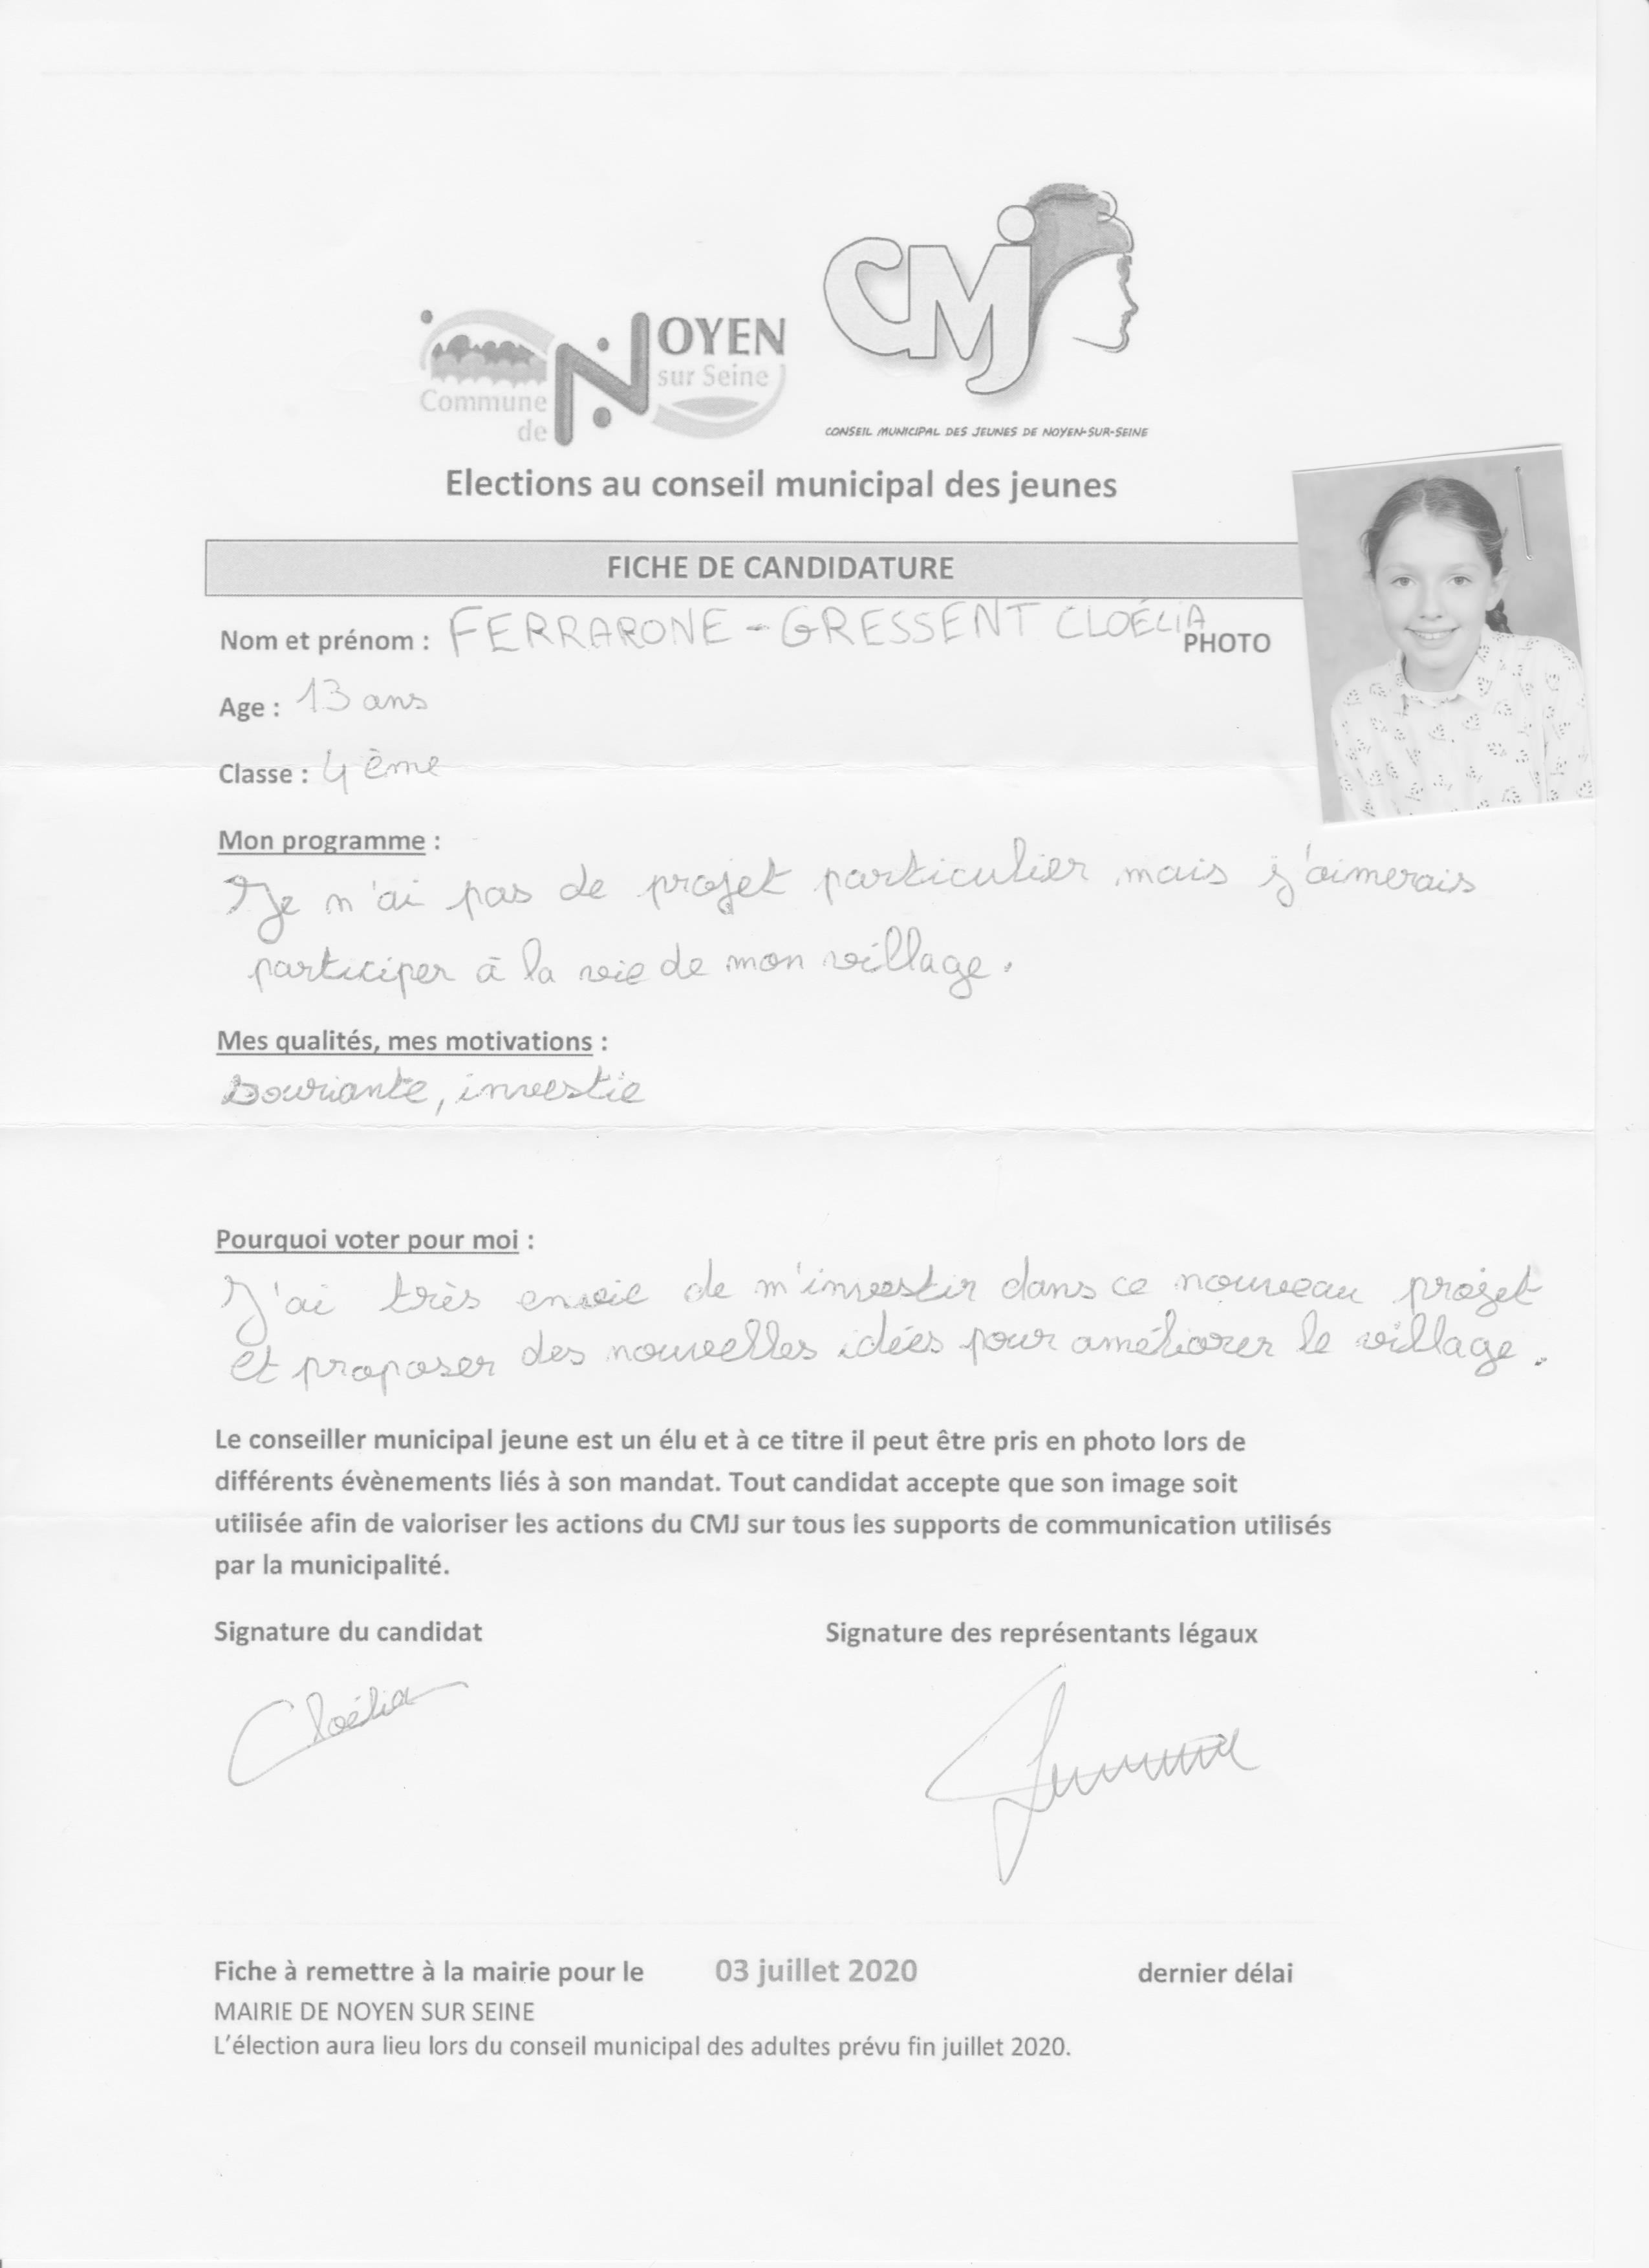 CMJ
NOYEN
sur Seine
Commune
de
CONSEIL MUNICIPAL DES JEUNES DE NOYEN-SUR-SEINE
Elections au conseil municipal des jeunes
FICHE DE CANDIDATURE
Nom et prénom : FERRARONE-GRESSENT CLOÉLIA
PHOTO
Age : 13 ans
Classe : 4ème
Mon programme :
Je n'ai pas de projet particulier mais j'aimerais
participer à la vie de mon village.
Mes qualités, mes motivations :
souriante, investie
Pourquoi voter pour moi :
J'ai très envie de m'investir dans ce nouveau projet
et proposer des nouvelles idées pour améliorer le village.
Le conseiller municipal jeune est un élu et à ce titre il peut être pris en photo lors de
différents évènements liés à son mandat. Tout candidat accepte que son image soit
utilisée afin de valoriser les actions du CMJ sur tous les supports de communication utilisés
par la municipalité.
Signature du candidat Signature des représentants légaux
Cloélia
Fiche à remettre à la mairie pour le 03 juillet 2020 dernier délai
MAIRIE DE NOYEN SUR SEINE
L'élection aura lieu lors du conseil municipal des adultes prévu fin juillet 2020.